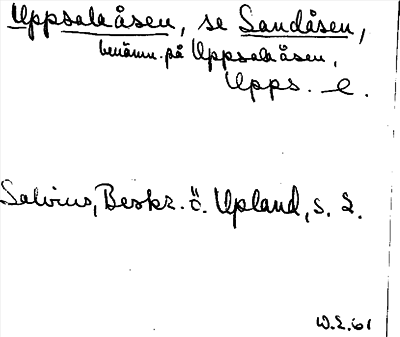 Uppsalaåsen, se Sandåsen,
benämn. på Uppsalaåsen,
Upps. l.
Salvius, Beskr. ö. Upland, s. 2.
W.E.61